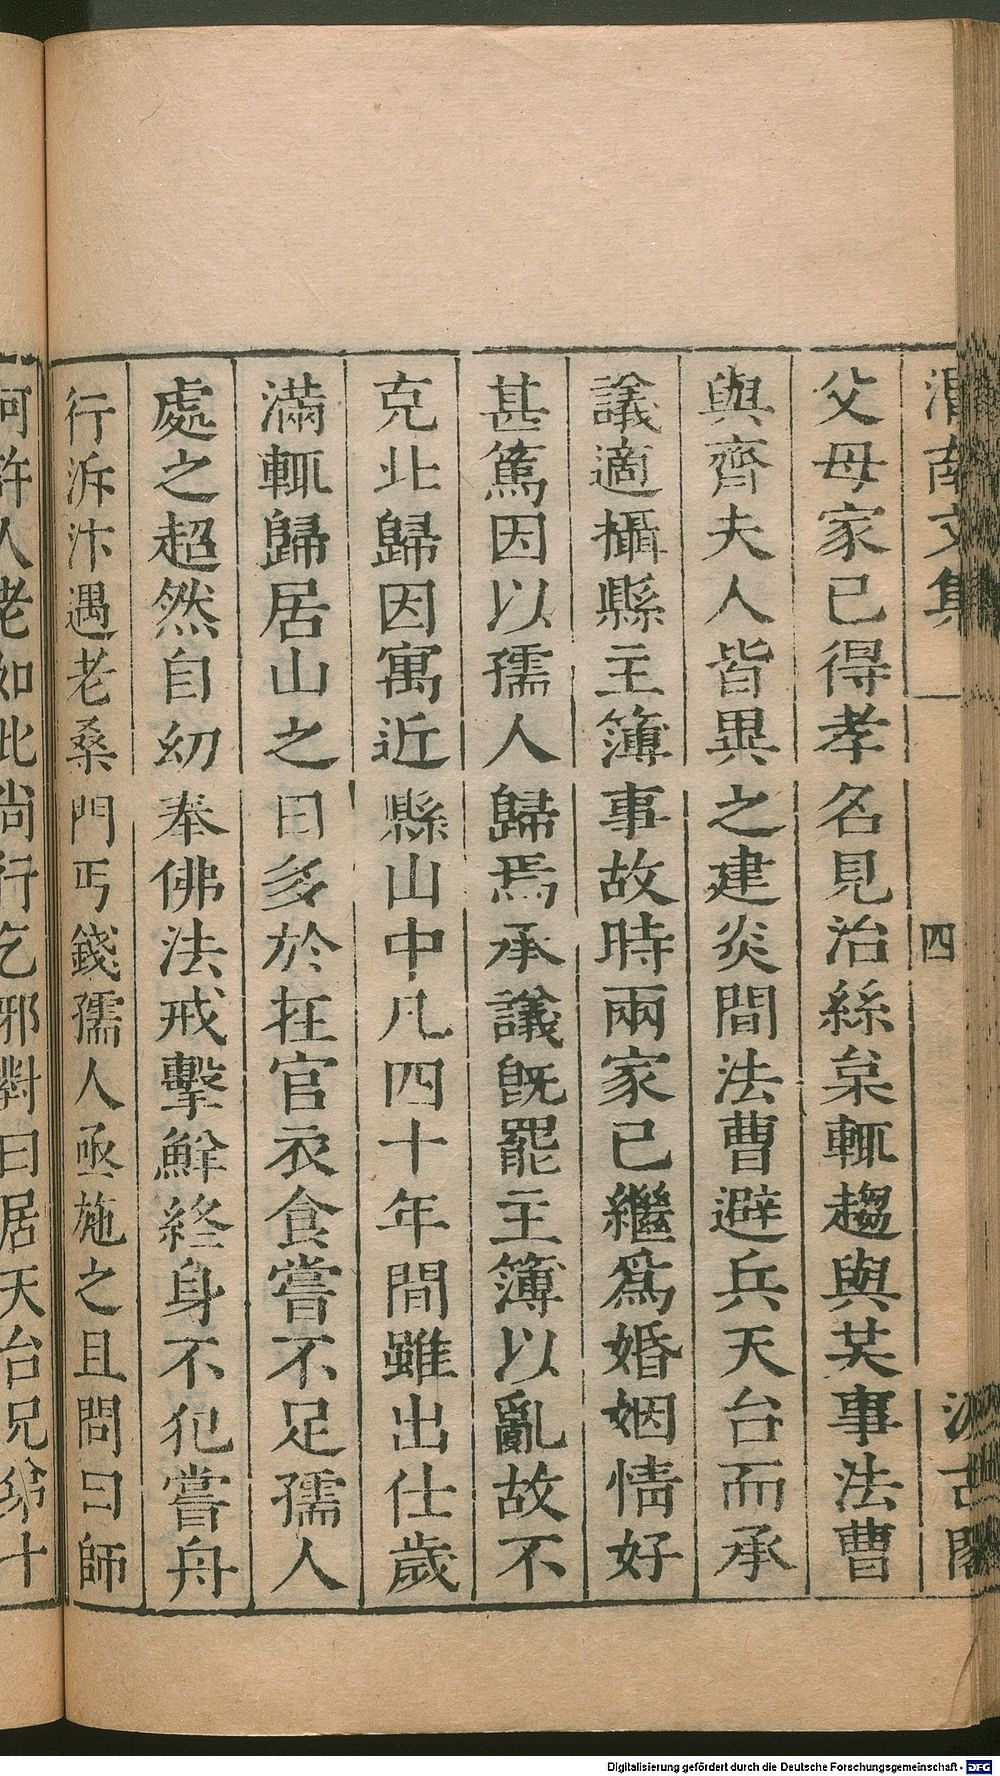 渭南文集 四 汲古閣
父母家已得孝名見治絲枲輒趨與芙事法曹
與齊夫人皆異之建炎間法曹避兵天台而承
議適攝縣主簿事故時兩家已繼爲婚姻情好
甚篤因以孺人歸焉承議旣罷主簿以亂故不
克北歸因寓近縣山中凡四十年間雖出仕歲
滿輒歸居山之日多於在官衣食嘗不足孺人
處之超然自幼奉佛法戒擊鮮終身不犯嘗舟
行泝汴遇老桑門丐錢孺人亟施之且問曰師
何許人老如此尚行乞邪對曰居天台兄弟十
Digitalisierung gefördert durch die Deutsche Forschungsgemeinschaft - DFG